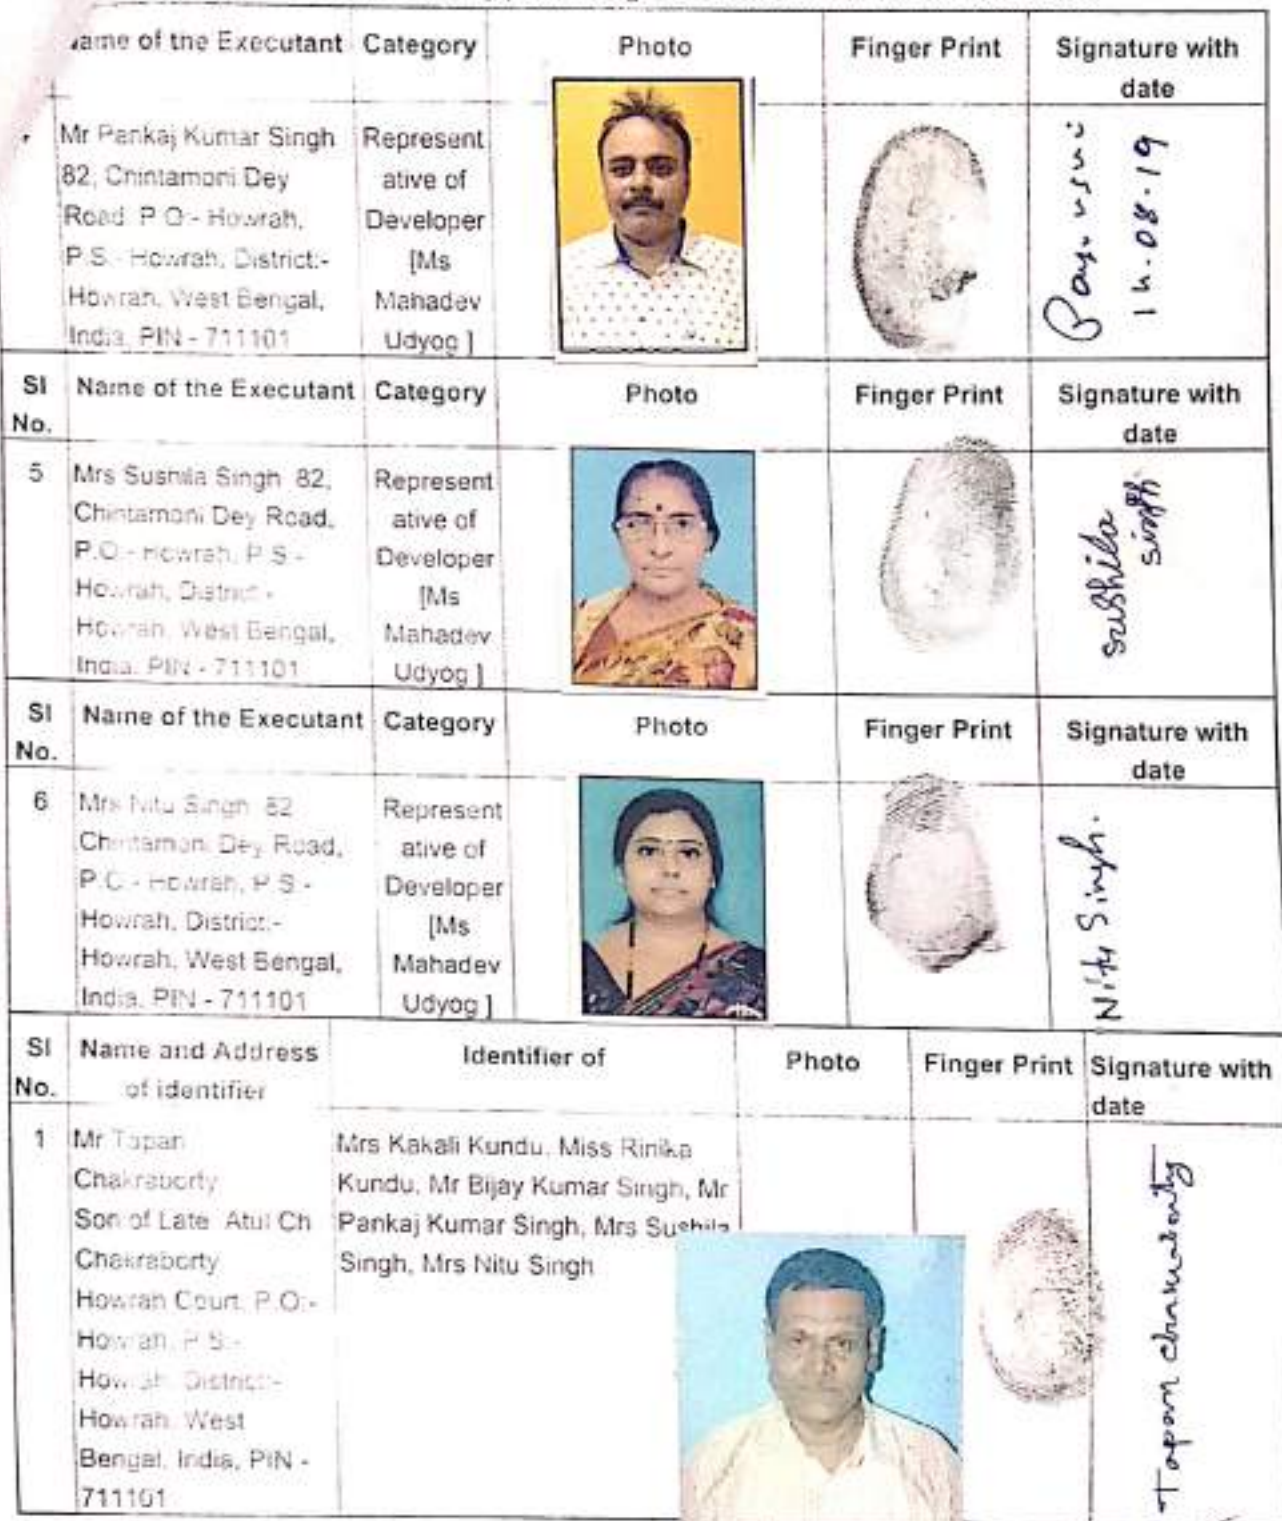 Name of the Executant Category Photo Finger Print Signature with
date
Mr Pankaj Kumar Singh
82, Chintamoni Dey
Road, P.O:- Howrah,
P.S:- Howrah, District:-
Howrah, West Bengal,
India, PIN - 711101
Represent
ative of
Developer
[Ms
Mahadev
Udyog ]
14.08.19
Sl
No.
Name of the Executant Category Photo Finger Print Signature with
date
5
Mrs Sushila Singh 82,
Chintamoni Dey Road,
P.O:- Howrah, P.S:-
Howrah, District:-
Howrah, West Bengal,
India, PIN - 711101
Represent
ative of
Developer
[Ms
Mahadev
Udyog ]
Sushila
Singh.
Sl
No.
Name of the Executant Category Photo Finger Print Signature with
date
6
Mrs Nitu Singh 82,
Chintamoni Dey Road,
P.O:- Howrah, P.S:-
Howrah, District:-
Howrah, West Bengal,
India, PIN - 711101
Represent
ative of
Developer
[Ms
Mahadev
Udyog ]
Nitu Singh.
Sl
No.
Name and Address
of identifier
Identifier of Photo Finger Print Signature with
date
1
Mr Tapan
Chakraborty
Son of Late Atul Ch
Chakraborty
Howrah Court, P.O:-
Howrah, P.S:-
Howrah, District:-
Howrah, West
Bengal, India, PIN -
711101
Mrs Kakali Kundu, Miss Rinika
Kundu, Mr Bijay Kumar Singh, Mr
Pankaj Kumar Singh, Mrs Sushila
Singh, Mrs Nitu Singh
Tapan Chakraborty